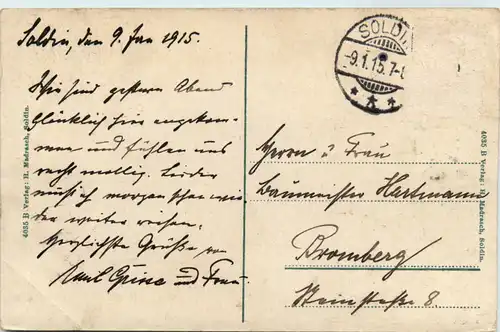 Soldin, den 9. Jan 1915.
Wir sind gestern Abend
Glücklich hier angekom-
men und fühlen uns
recht mollig. Leider
muß ich morgen schon wie-
der weiter reisen.
Herzlichste Grüße von
und Frau.
4035 B Verlag: H. Madrasch, Soldin.
SOLDIN
-9.1.15.7-
Herrn u Frau
Baumeister Hartmann
Bromberg
Steinstraße 8.
4035 B Verlag: H. Madrasch, Soldin.